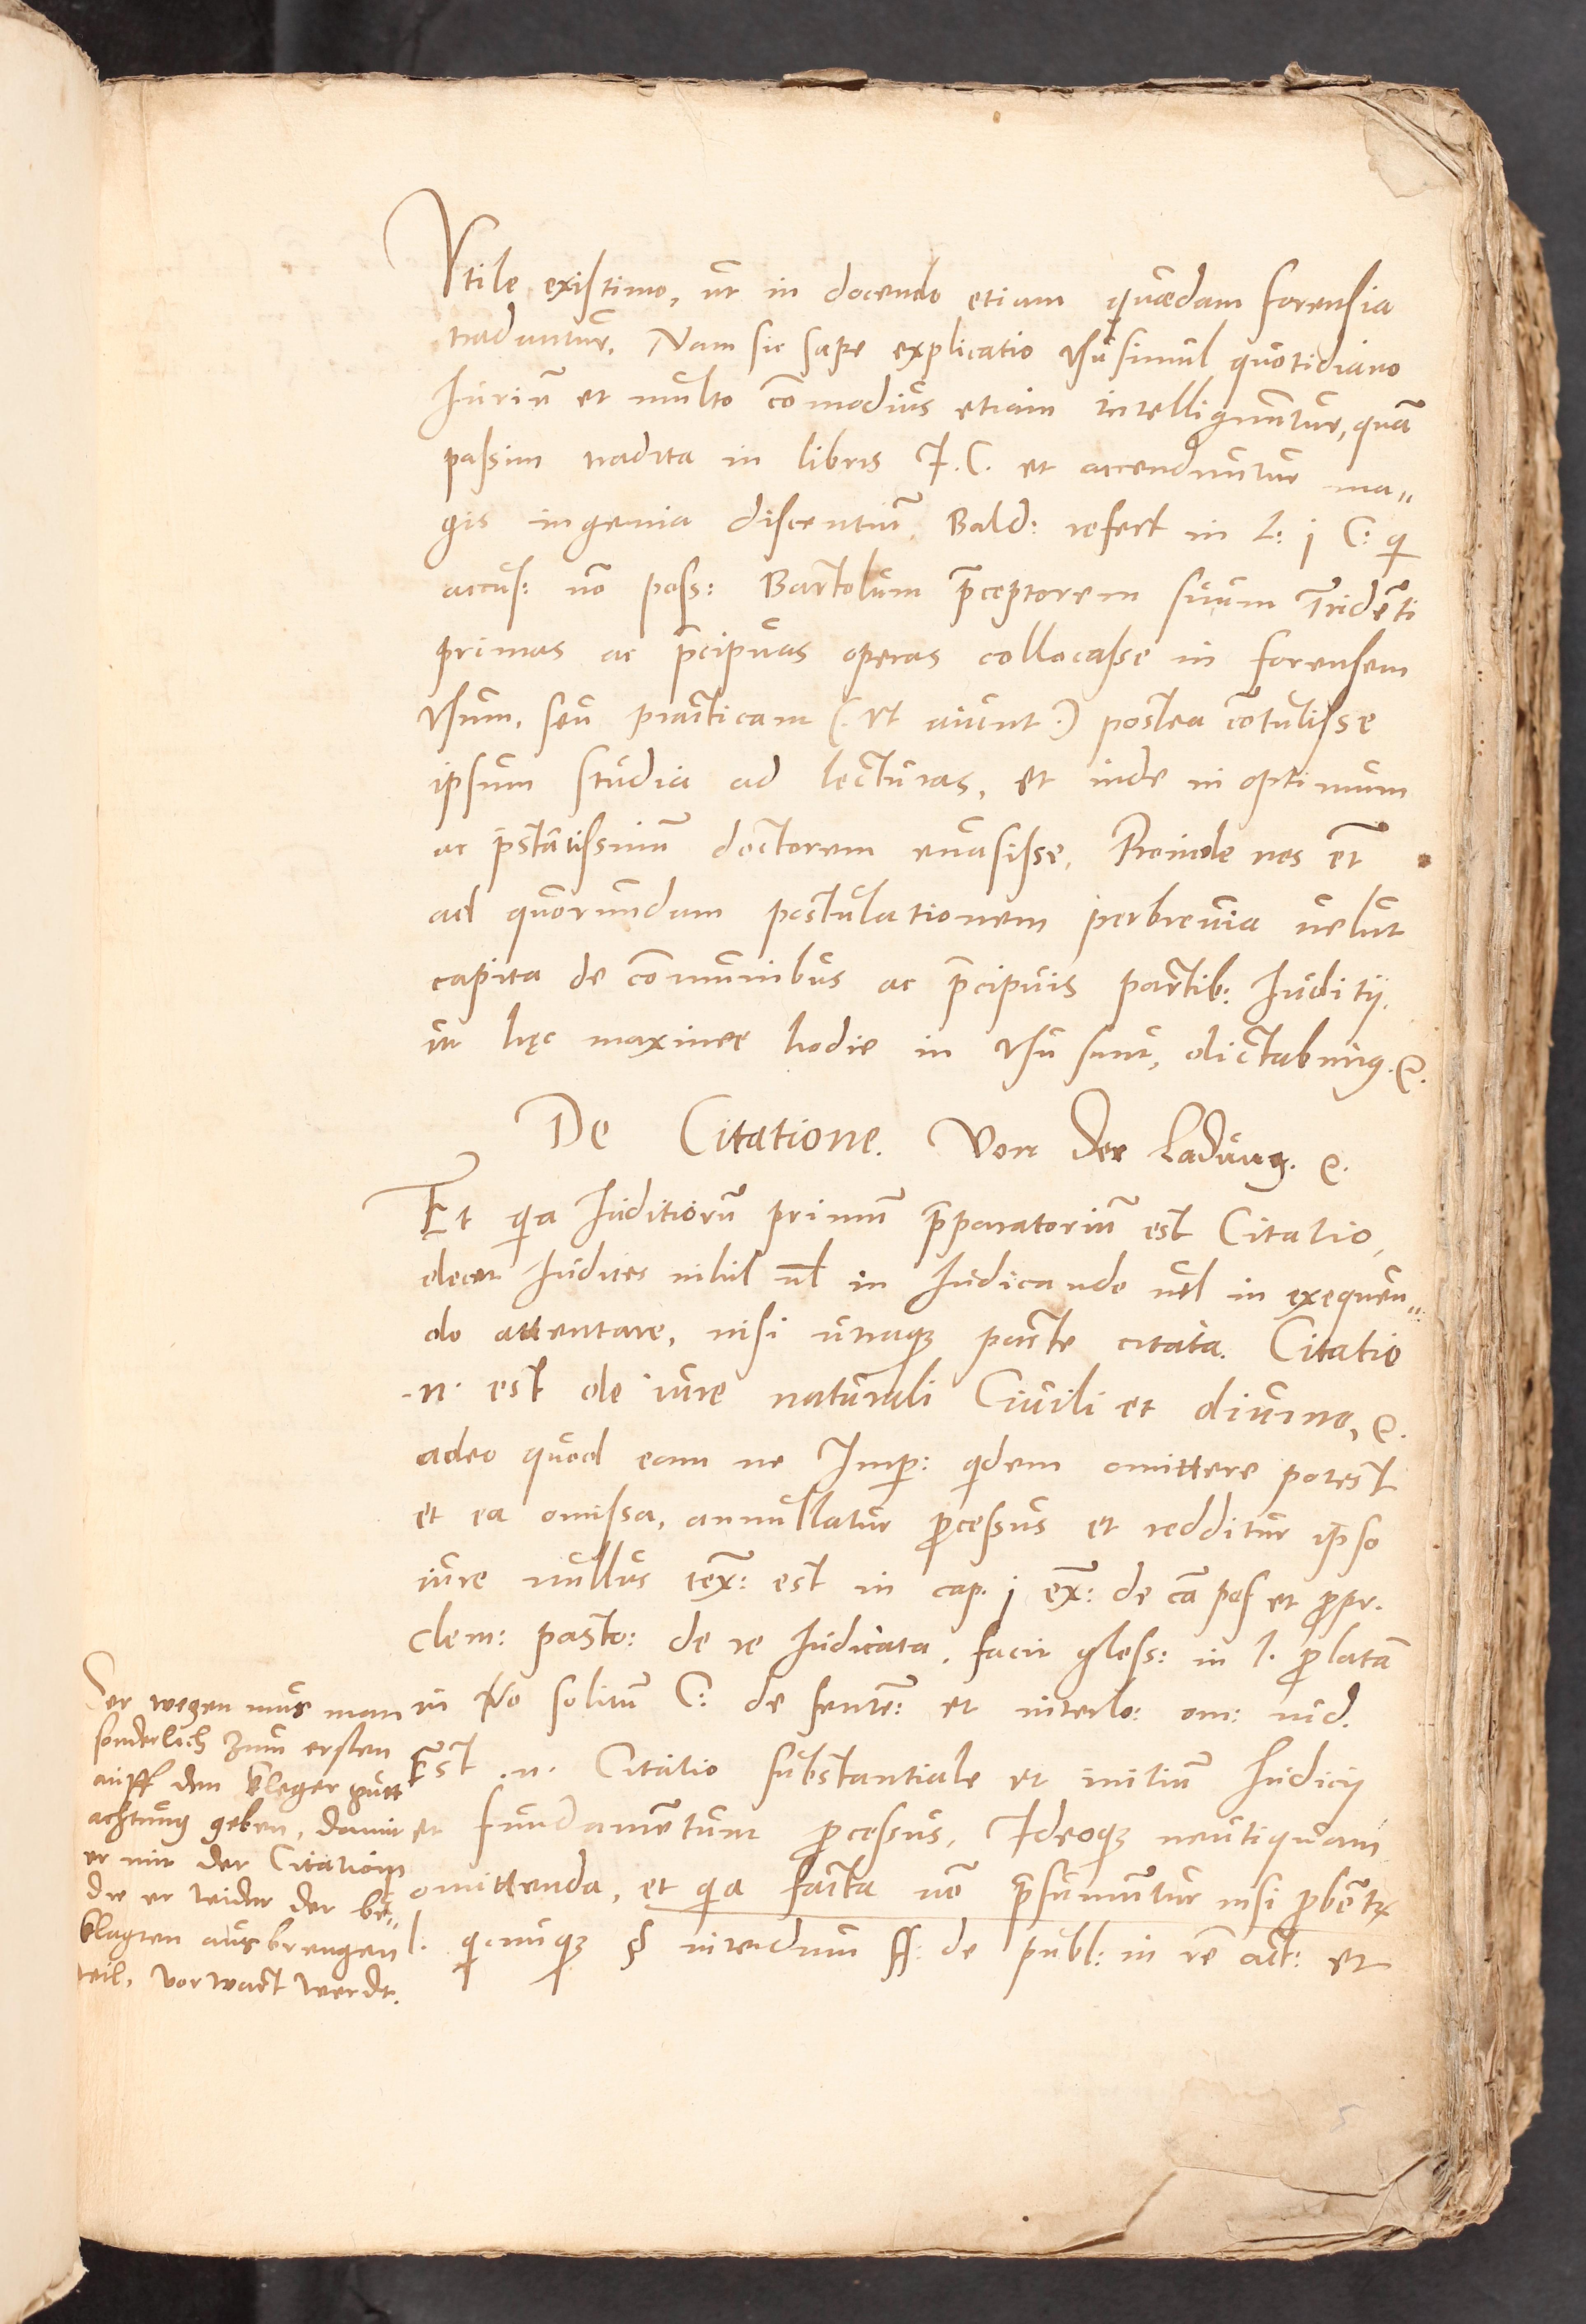 Vtile existimo, ut in docendo etiam quædam forensia
traduntur. Nam sic sæpe explicatio usu simul quotidiano
Iuriũ et multo cõmodius etiam intelliguntur, quã
passim tradita in libris I. C. et accenduntur ma„
gis ingenia discentiũ. Bald: refert in L: j C: qi
accus: nõ poss: Bartolum p̃ceptorem suum Tridẽti
primas ac p̃cipuas operas collocasse in forensem
usum, seu practicam (. ut aiunt .) postea cõtulisse
ipsum studia ad lecturas, et inde in optimum
ac p̃stãtissimũ doctorem euasisse. Proinde nos et̃
ad quorundam postulationem perbreuia uelut
capita de cõmunibus ac p̃cipuis partib: Iuditij,
ut hęc maxime hodie in usu sunt, dictabimus. &.
De Citatione. Von der Ladung. &.
Et qia Iuditiorũ primũ p̃paratoriũ est Citatio,
decet Iudices nihil ul̃ in Iudicando uel in exequen„
do attentare, nisi utraqȝ parte citata. Citatio
.n. est de iure naturali Ciuili et diuino, &.
adeo quod eam ne Imp: qidem omittere potest
et ea omissa, annullatur p̱cessus et redditur ipso
iure nullus tex̃: est in cap. j ex̃: de cã pos et p̱pr.
clem: pasto: de re Iudicata. facit gloss: in l. p̱latã
in Vo solitũ C: de senten̄: et interlo: om: iud.
Est .n. Citatio substantiale et initiũ Iudicij
et fundamẽtum p̱cessus, Ideoqȝ neutiquam
omittenda, et qia facta nõ p̃sumũtur nisi p̱bẽtr
l. qicunqȝ § interdum ff: de publ: in rẽ act: et
Der wegen mus man
sonderlich zum ersten
auff den kleger gutt
achtung geben, damit
er mit der Citation
die er wider der be„
klagten ausbrengen
teil, vorwart werdt.
5